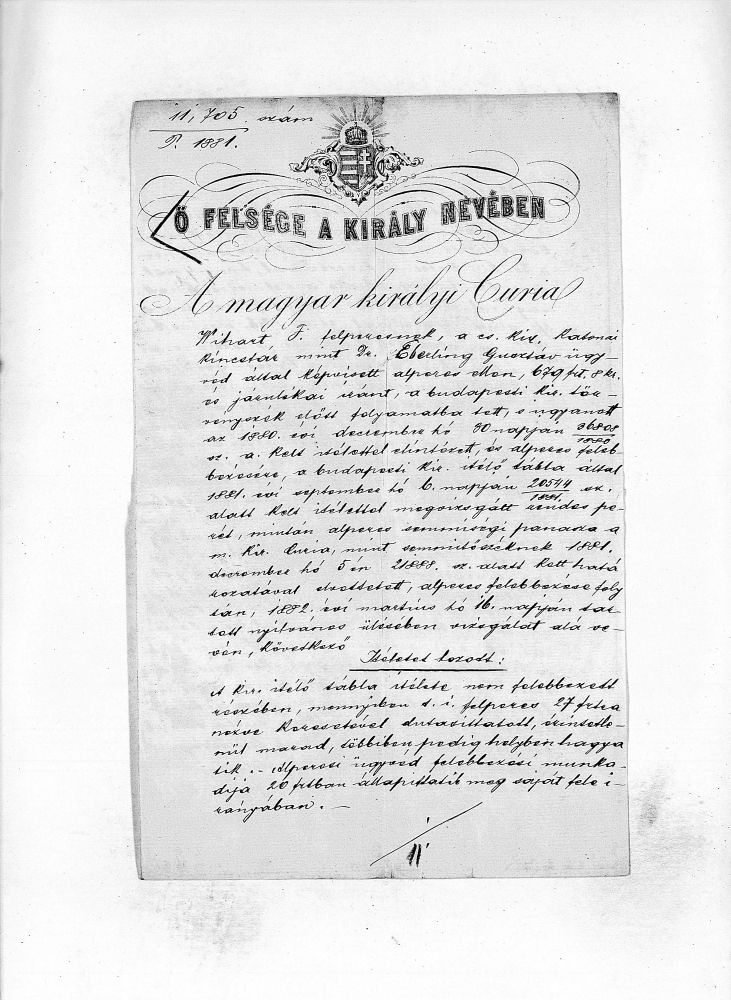 11,705. szám
P. 1881.
Ő FELSÉGE A KIRÁLY NEVÉBEN
A magyar királyi Curia
Wihart F. felperesnek, a cs. kir. katonai
kincstár mint Dr. Eberling Gusztáv ügy-
véd által képviselt alperes ellen, 679 frt. 8 kr.
és járulékai iránt, a budapesti kir. tör-
vényszék előtt folyamatba tett, s ugyanott
az 1880. évi decrember hó 30 napján 36808/1880
sz. a. kelt itélettel elintézett, és alperes feleb-
bezésére, a budapesti kir. itélő tábla által
1881. évi september hó 6. napján 20544/1881. sz.
alatt kelt itélettel megvizsgált rendes pe-
rét, miután alperes semmiségi panasza a
m. kir. Curia, mint semmitőszéknek 1881.
decrember hó 5 én 21888. sz. alatt kelt hatá
rozatával elvettetett, alperes felebbezése foly
tán, 1882. évi martius hó 16. napján tar-
tott nyilvános ülésében vizsgálat alá ve-
vén, következő
Itéletet hozott:
A kir. itélő tábla itélete nem felebbezett
részében, mennyiben t. i. felperes 27 frtra
nézve keresetével elutasittatott, érintetle-
nül marad, többiben pedig helybenhagya
tik. - Alperesi ügyvéd felebbezési munka-
dija 20 frtban állapittatik meg saját fele i-
rányában. -